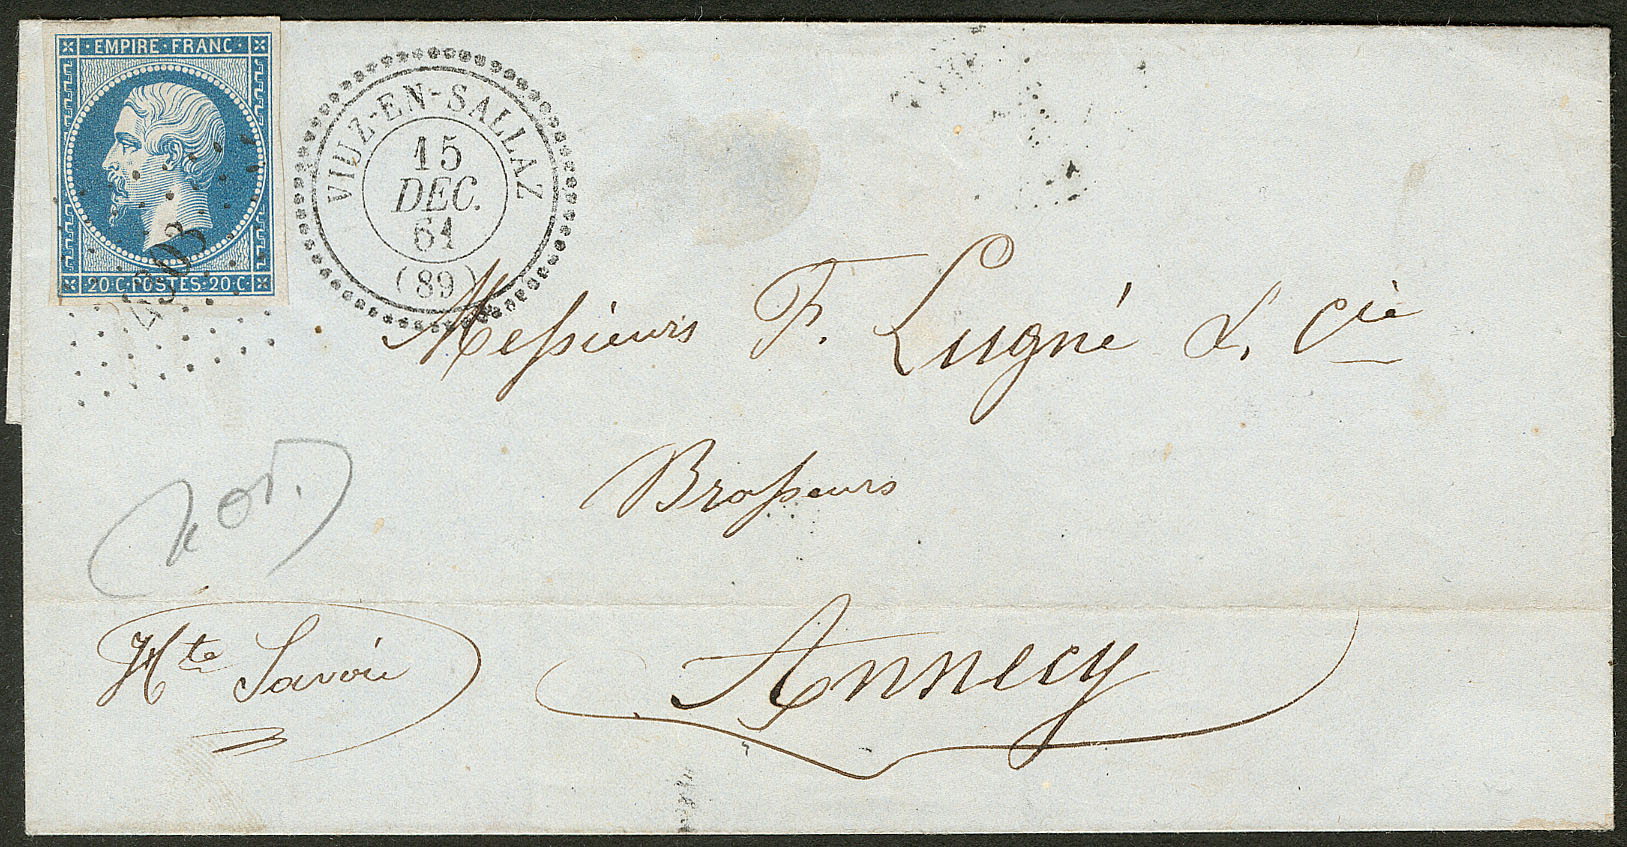 EMPIRE·FRANC·
20·C·POSTES·20·C·
VIUZ-EN-SALLAZ
15
DEC.
61
(89)
Messieurs F. Lugné & Cie
Brasseurs
Annecy
Hte Savoie